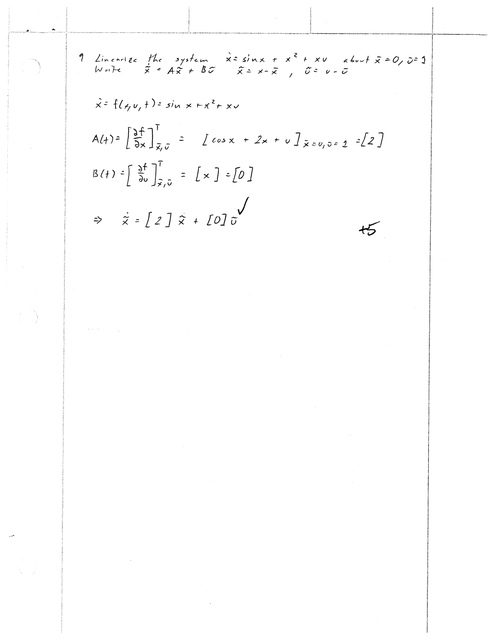 9 Linearize the system ẋ = sinx + x² + xu about x̄ = 0, ū = 1
Write x̃̇ = Ax̃ + Bũ x̃ = x - x̄, ũ = u - ū
ẋ = f(x,u,t) = sin x + x² + xu
A(t) = [∂f/∂x]ᵀ x̄,ū = [cosx + 2x + u] x̄=0,ū=1 = [2]
B(t) = [∂f/∂u]ᵀ x̄,ū = [x] = [0]
⇒ x̃̇ = [2] x̃ + [0] ũ ✓
+5